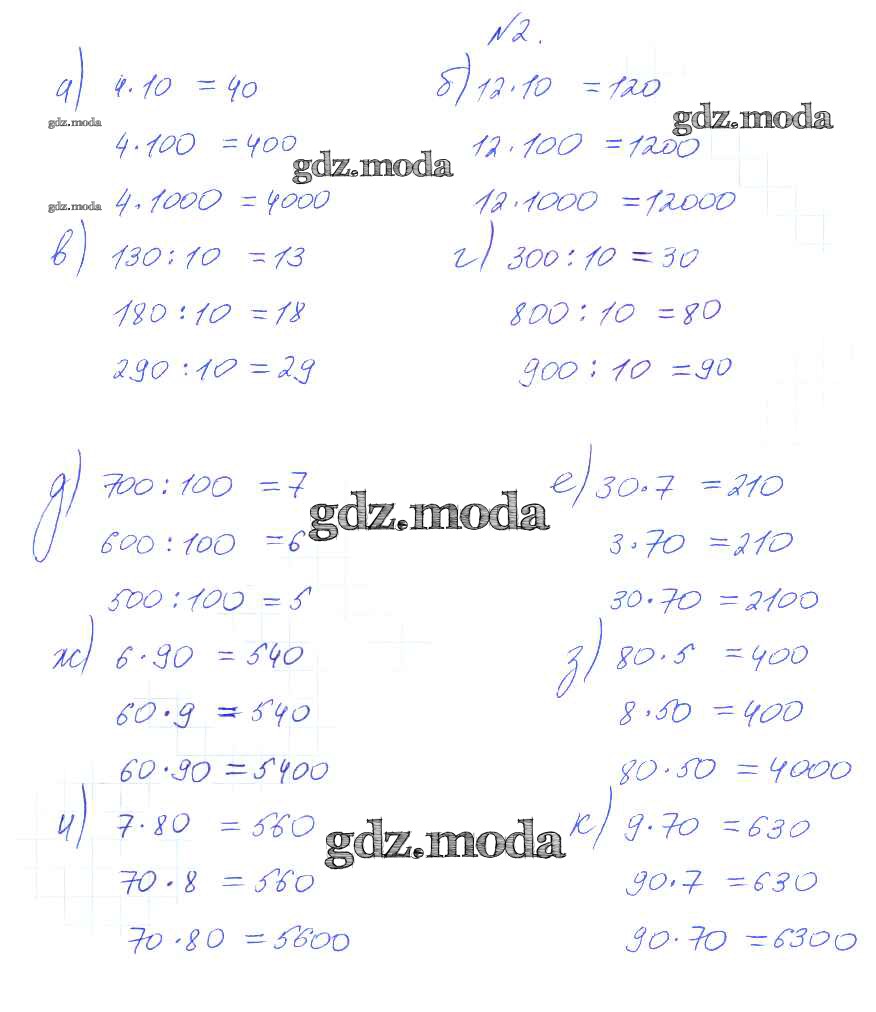 №2.
а) 4·10 = 40 б) 12·10 = 120
gdz.moda gdz.moda
4·100 = 400 12·100 = 1200
gdz.moda
gdz.moda 4·1000 = 4000 12·1000 = 12000
в) 130:10 = 13 г) 300:10 = 30
180:10 = 18 800:10 = 80
290:10 = 29 900:10 = 90
д) 700:100 = 7 е) 30·7 = 210
gdz.moda
600:100 = 6 3·70 = 210
500:100 = 5 30·70 = 2100
ж) 6·90 = 540 з) 80·5 = 400
60·9 = 540 8·50 = 400
60·90 = 5400 80·50 = 4000
и) 7·80 = 560 к) 9·70 = 630
gdz.moda
70·8 = 560 90·7 = 630
70·80 = 5600 90·70 = 6300